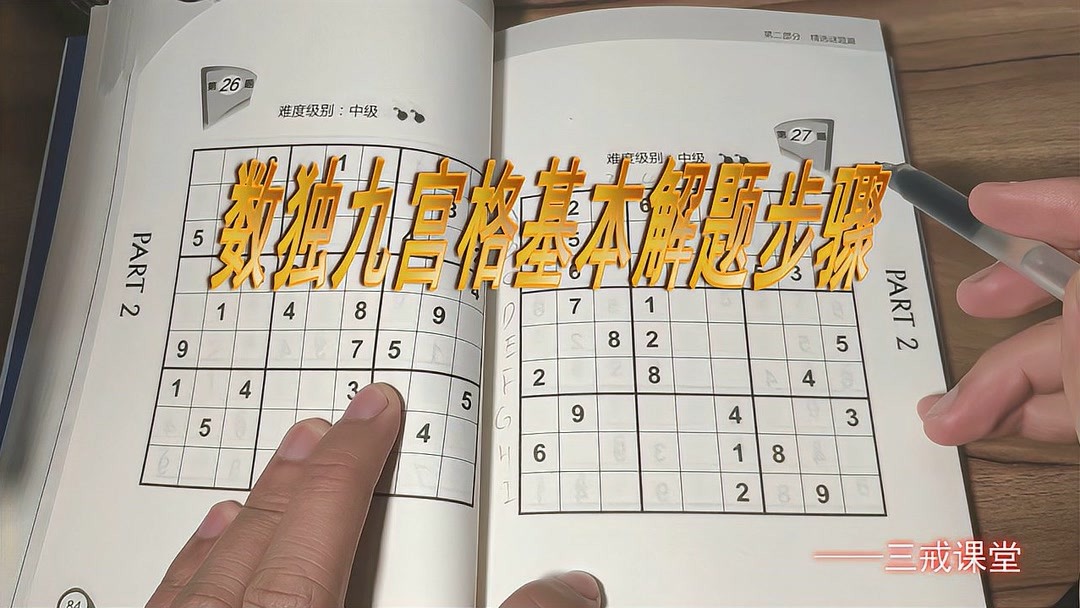 第二部分 精选谜题篇
第26题
难度级别：中级
第27题
难度级别：中级
数独九宫格基本解题步骤
PART 2
PART 2
5
1 4 8 9
9 7 5
1 4 3 5
5 4
7 1
8 2 5
2 8 4
9 4 3
6 1 8
2 9
D
E
F
G
H
I
84
——三戒课堂